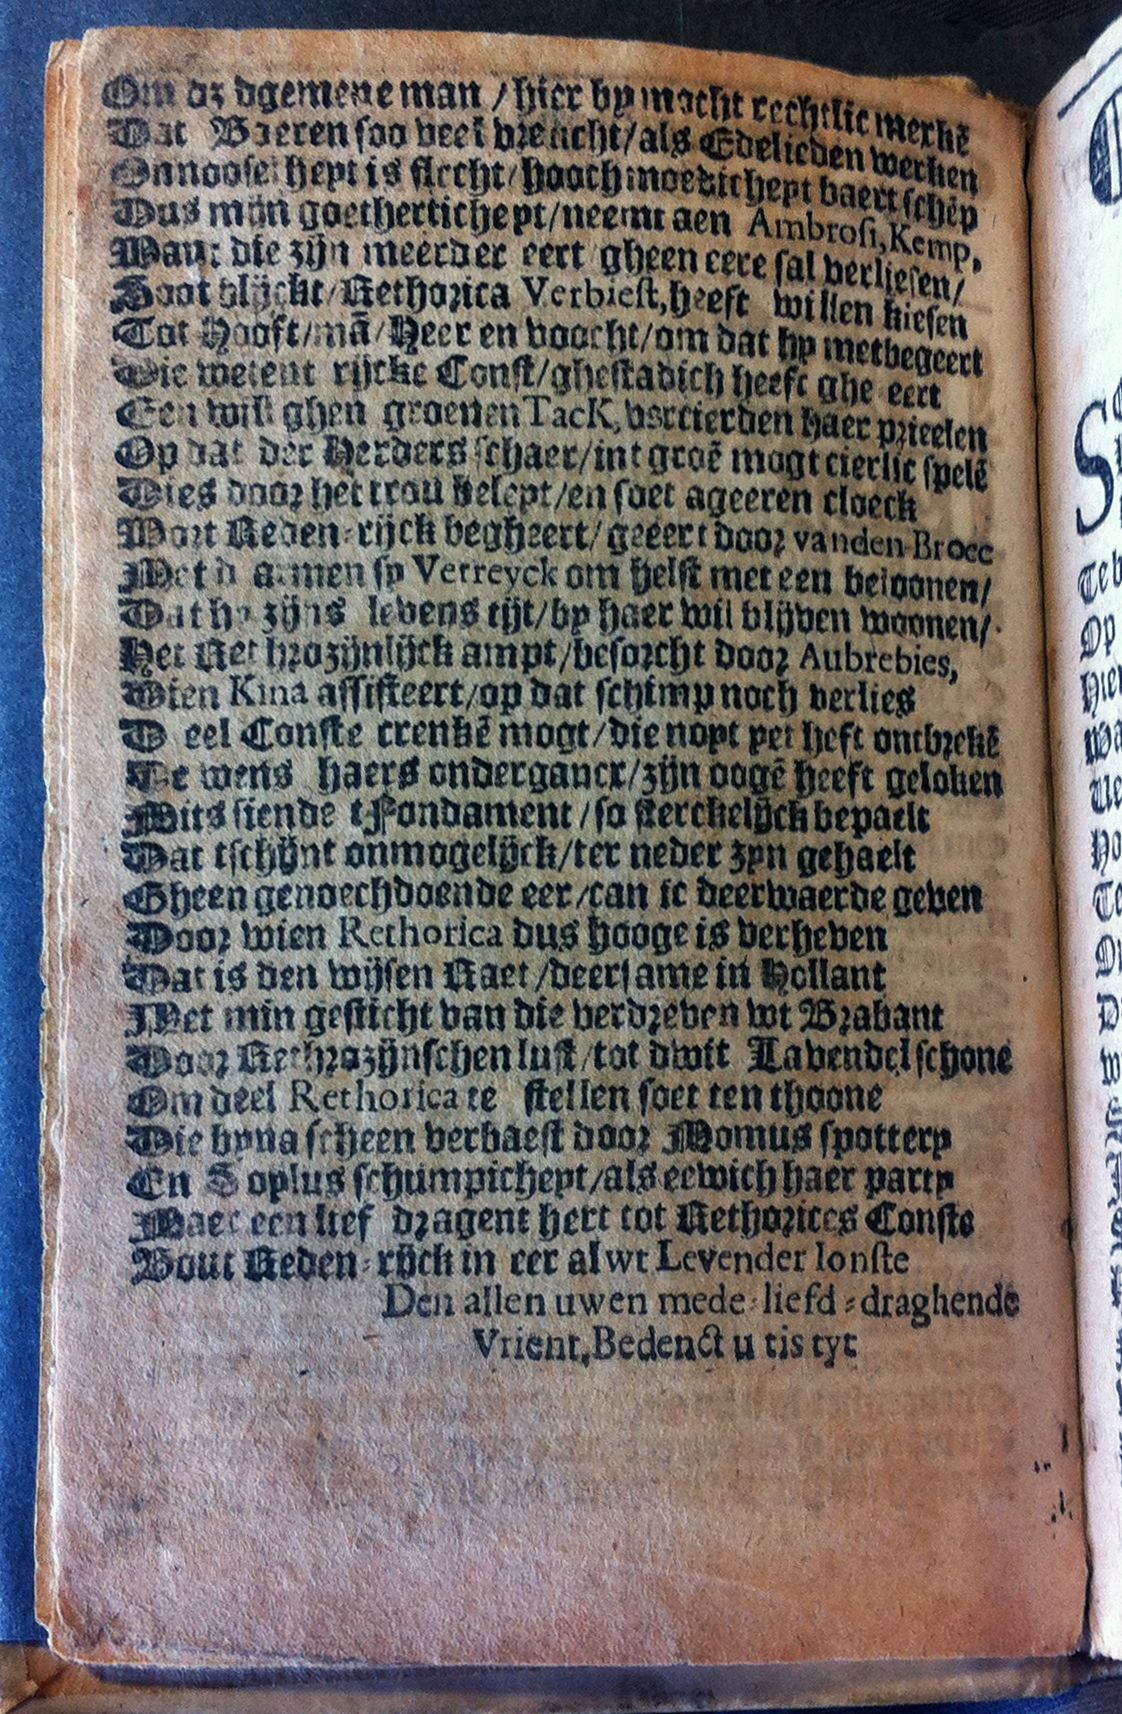 Om dz dgemene man / hier by mocht rechtlic merkẽ
Dat Boeren soo veel vreucht / als Edelieden werken
Onnoosel heyt is slecht / hooch moedicheyt baert schẽp
Dus mijn goethertichept / neemt aen Ambrosi, Kemp,
Want die zijn meerder eert gheen eere sal verliesen /
Soot blijckt / Rethorica Verbiest, heeft willen kiesen
Tot Hooft / mã / Heer en voocht / om dat hy metbegeert
Die wetent rijcke Const / ghestadich heeft ghe eert
Een will ghen groenen TacK, vercierden haer prieelen
Op dat der Herders schaer / int groẽ mogt cierlic spelẽ
Dies door het trou beleyt / en soet ageeren cloeck
Wort Reden-rijck begheert / geeert door vanden Broec
Met d armen sy Verreyck om helst met een beloonen /
Dat hy zijns levens tijt / by haer wil blijven woonen /
Het Ret hrozijnlijck ampt / besorcht door Aubrebies,
Wien Kina assisteert / op dat schimp noch verlies
D eel Conste crenkẽ mogt / die noyt yet heft ontbrekẽ
De wens haers onderganck / zijn oogẽ heeft geloken
Mits siende t Fondament / so sterckelijck bepaelt
Dat tschijnt onmogelijck / ter neder zyn gehaelt
Gheen genoechdoende eer / can ic deerwaerde geven
Door wien Rethorica dus hooge is verheven
Dat is den wijsen Raet / deersame in Hollant
Met min gesticht van die verdreven wt Brabant
Door Rethrozijnschen lust / tot dwit Lavendel schone
Om deel Rethorica te stellen soet ten thoone
Die byna scheen verbaest door Momus spottery
En Soplus schumpicheyt / als eewich haer party
Maer een lief dragent hert tot Rethorices Conste
Bout Reden-rijck in eer al wt Levender Ionste
Den allen uwen mede-liefd-draghende
Vrient, Bedenct u tis tyt